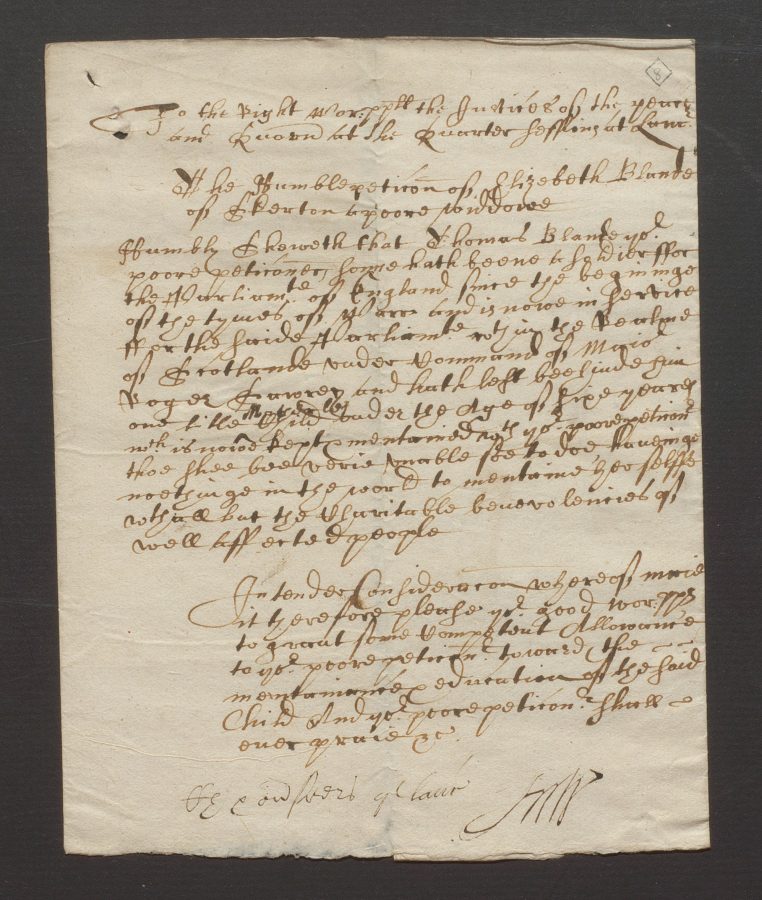 8
To the Right wor:pplł the Justices of the peace
and Quorū at the Quarter Sessions at Lanc:
The Humble peticōn of Elizebeth Blande
of Skerton a poore widdowe
Humbly Sheweth that Thomas Blande yor
poore peticōners sonne hath beene a soldier ffor
the Parliamte of England since the begininge
of the tymes of Warr and is nowe in service
ffor the saide Parliamte wthin the Realme
of Scotlande under Command of Maior
Roger Sawrey and hath left beehinde him
one little Motherles Child under the Age of sixe yeares
wch is nowe kept & mentained wth yor poore peticionr
thoe shee bee verie unable soe to doe haveinge
noethinge in the world to mentaine her selffe
wthall but the Charitable benevolencies of
well affected people
In tender Consideracōn whereof maie
it therefore please yor good worpps
to graunt some Competent Allowance
to yor poore peticōnr toward the
mentainance & education of the said
Child And yor poore peticōnr shall
ever praie &c.